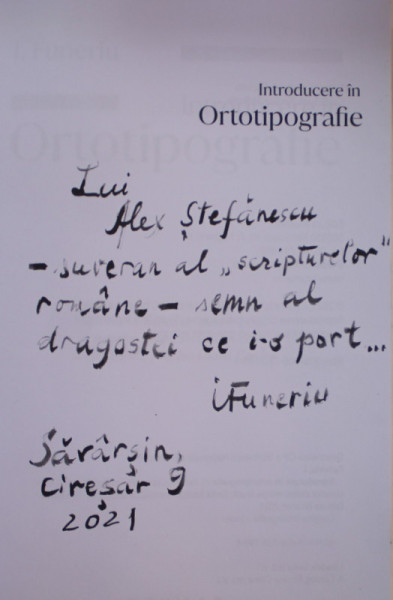 Introducere în
Ortotipografie
Lui
Alex Ștefănescu
– suveran al „scripturelor”
române – semn al
dragostei ce i-o port...
IFuneriu
Sărârșin,
Cireșar 9
2021